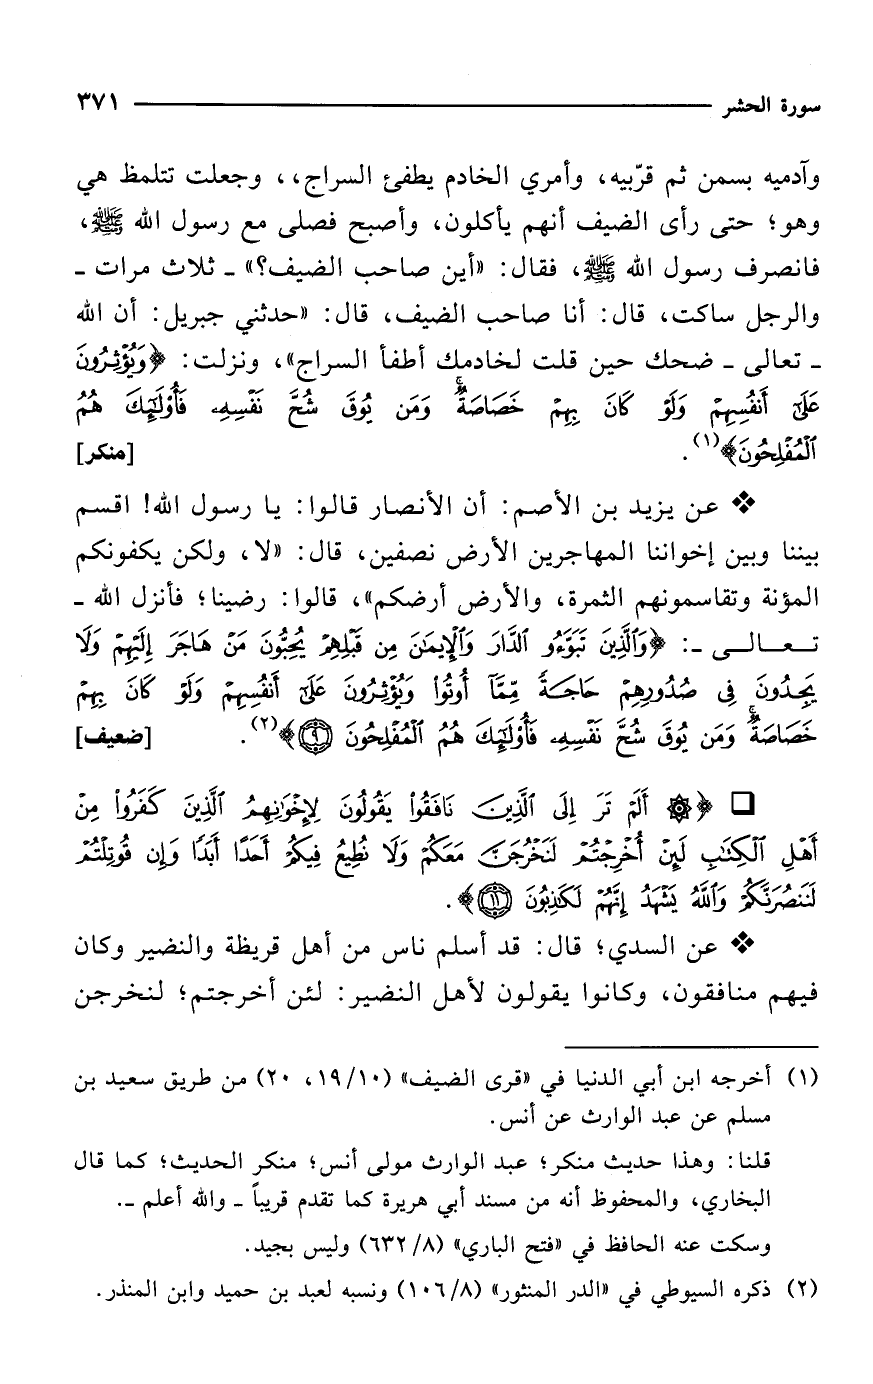 سورة الحشر ٣٧١
وآدميه بسمن ثم قرّبيه، وأمري الخادم يطفئ السراج،، وجعلت تتلمظ هي
وهو؛ حتى رأى الضيف أنهم يأكلون، وأصبح فصلى مع رسول الله ﷺ،
فانصرف رسول الله ﷺ، فقال: «أين صاحب الضيف؟» ـ ثلاث مرات ـ
والرجل ساكت، قال: أنا صاحب الضيف، قال: «حدثني جبريل: أن الله
ـ تعالى ـ ضحك حين قلت لخادمك أطفأ السراج»، ونزلت: ﴿وَيُؤْثِرُونَ
عَلَىٰٓ أَنفُسِهِمْ وَلَوْ كَانَ بِهِمْ خَصَاصَةٌ ۚ وَمَن يُوقَ شُحَّ نَفْسِهِۦ فَأُو۟لَـٰٓئِكَ هُمُ
ٱلْمُفْلِحُونَ﴾(١). [منكر]
❖ عن يزيد بن الأصم: أن الأنصار قالوا: يا رسول الله! اقسم
بيننا وبين إخواننا المهاجرين الأرض نصفين، قال: «لا، ولكن يكفونكم
المؤنة وتقاسمونهم الثمرة، والأرض أرضكم»، قالوا: رضينا؛ فأنزل الله ـ
تعالى ـ: ﴿وَٱلَّذِينَ تَبَوَّءُو ٱلدَّارَ وَٱلْإِيمَـٰنَ مِن قَبْلِهِمْ يُحِبُّونَ مَنْ هَاجَرَ إِلَيْهِمْ وَلَا
يَجِدُونَ فِى صُدُورِهِمْ حَاجَةً مِّمَّآ أُوتُوا۟ وَيُؤْثِرُونَ عَلَىٰٓ أَنفُسِهِمْ وَلَوْ كَانَ بِهِمْ
خَصَاصَةٌ ۚ وَمَن يُوقَ شُحَّ نَفْسِهِۦ فَأُو۟لَـٰٓئِكَ هُمُ ٱلْمُفْلِحُونَ ٩﴾(٢). [ضعيف]
❑ ﴿۞ أَلَمْ تَرَ إِلَى ٱلَّذِينَ نَافَقُوا۟ يَقُولُونَ لِإِخْوَٰنِهِمُ ٱلَّذِينَ كَفَرُوا۟ مِنْ
أَهْلِ ٱلْكِتَـٰبِ لَئِنْ أُخْرِجْتُمْ لَنَخْرُجَنَّ مَعَكُمْ وَلَا نُطِيعُ فِيكُمْ أَحَدًا أَبَدًا وَإِن قُوتِلْتُمْ
لَنَنصُرَنَّكُمْ وَٱللَّهُ يَشْهَدُ إِنَّهُمْ لَكَـٰذِبُونَ ١١﴾.
❖ عن السدي؛ قال: قد أسلم ناس من أهل قريظة والنضير وكان
فيهم منافقون، وكانوا يقولون لأهل النضير: لئن أخرجتم؛ لنخرجن
(١) أخرجه ابن أبي الدنيا في «قرى الضيف» (١٠/ ١٩، ٢٠) من طريق سعيد بن
مسلم عن عبد الوارث عن أنس.
قلنا: وهذا حديث منكر؛ عبد الوارث مولى أنس؛ منكر الحديث؛ كما قال
البخاري، والمحفوظ أنه من مسند أبي هريرة كما تقدم قريباً ـ والله أعلم ـ.
وسكت عنه الحافظ في «فتح الباري» (٨/ ٦٣٢) وليس بجيد.
(٢) ذكره السيوطي في «الدر المنثور» (٨/ ١٠٦) ونسبه لعبد بن حميد وابن المنذر.